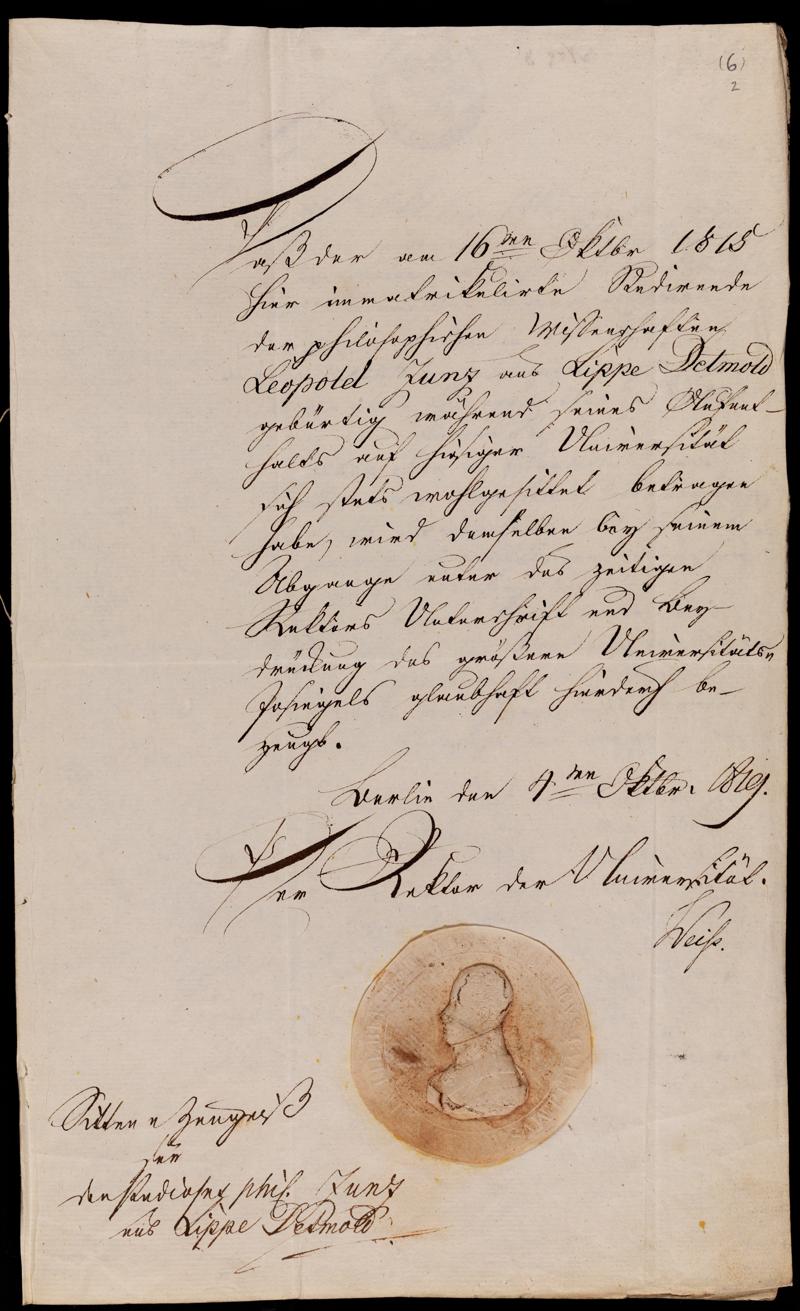 (6)
2
Daß der am 16ten Oktbr 1815
hier immatrikulirte Studirende
der philosophischen Wissenschaften
Leopold Zunz aus Lippe Detmold
gebürtig während seines Aufent-
halts auf hiesiger Universität
sich stets wohlgesittet betragen
habe, wird demselben bey seinem
Abgange unter des zeitigen
Rektors Unterschrift und Bey-
drückung des größern Universitäts-
Insiegels glaubhaft hierdurch be-
zeugt.
Berlin den 4ten Oktbr. 1819.
Der Rektor der Universität.
Weiss.
Sitten Zeugniß
für
den Studiosus phil. Zunz
aus Lippe Detmold